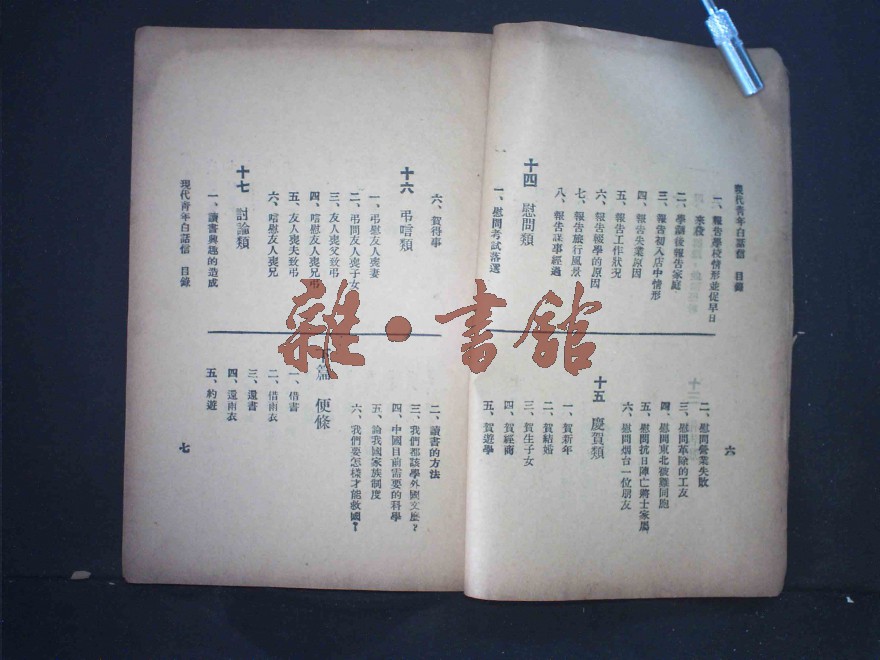 現代青年白話信 目錄
一、報告學校情形並促早日
來校
二、學劇後報告家庭
三、報告初入店中情形
四、報告失業原因
五、報告工作狀況
六、報告輟學的原因
七、報告旅行風景
八、報告謀事經過
十四 慰問類
一、慰問考試落選
二、慰問營業失敗
三、慰問革險的工友
四、慰問東北被難同胞
五、慰問抗日陣亡將士家屬
六、慰問烟台一位朋友
十五 慶賀類
一、賀新年
二、賀結婚
三、賀生子女
四、賀經商
五、賀遊學
六
六、賀得事
十六 弔唁類
一、弔慰友人喪妻
二、弔問友人喪子女
三、友人喪父致弔
四、唁慰友人喪兄弟
五、友人喪夫致弔
六、唁慰友人喪兄
十七 討論類
一、讀書興趣的造成
二、讀書的方法
三、我們都該學外國文麽?
四、中國目前需要的科學
五、論我國家族制度
六、我們要怎樣才能救國?
篇 便條
一、借書
二、借雨衣
三、還書
四、還雨衣
五、約遊
現代青年白話信 目錄
七
雜·書館